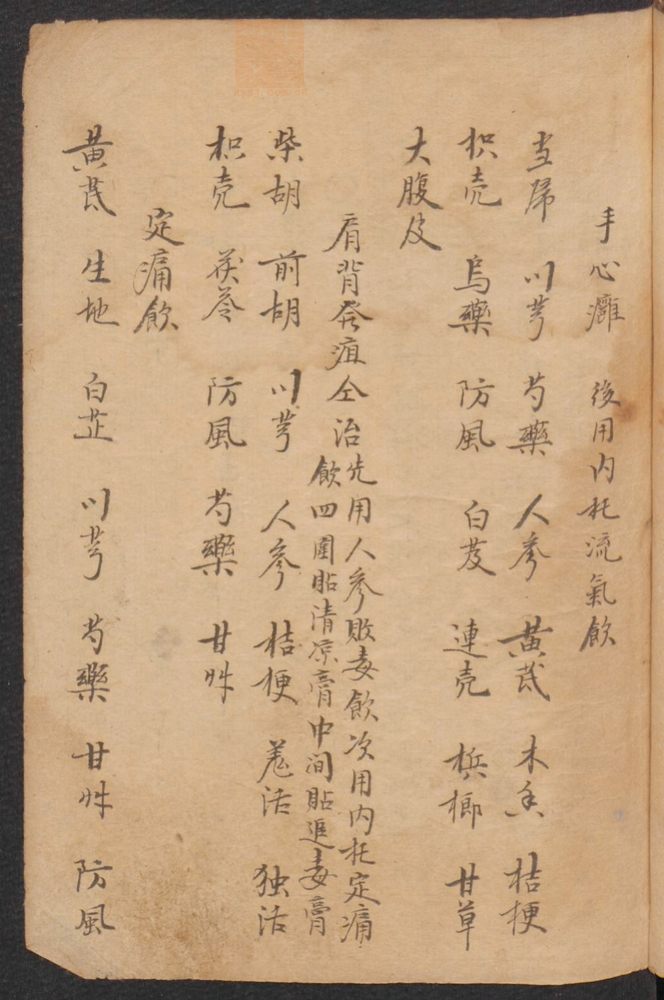 手心癰 後用内托流氣飲
当歸 川芎 芍藥 人參 黃芪 木香 桔梗
枳壳 烏藥 防風 白芨 連壳 梹榔 甘草
大腹皮
肩背發疽仝治 先用人參敗毒飲次用内托定痛
飲四圍貼清凉膏中间貼追毒膏
柴胡 前胡 川芎 人參 桔梗 羗活 独活
枳壳 茯苓 防風 芍藥 甘艸
定痛飲
黃芪 生地 白芷 川芎 芍藥 甘艸 防風